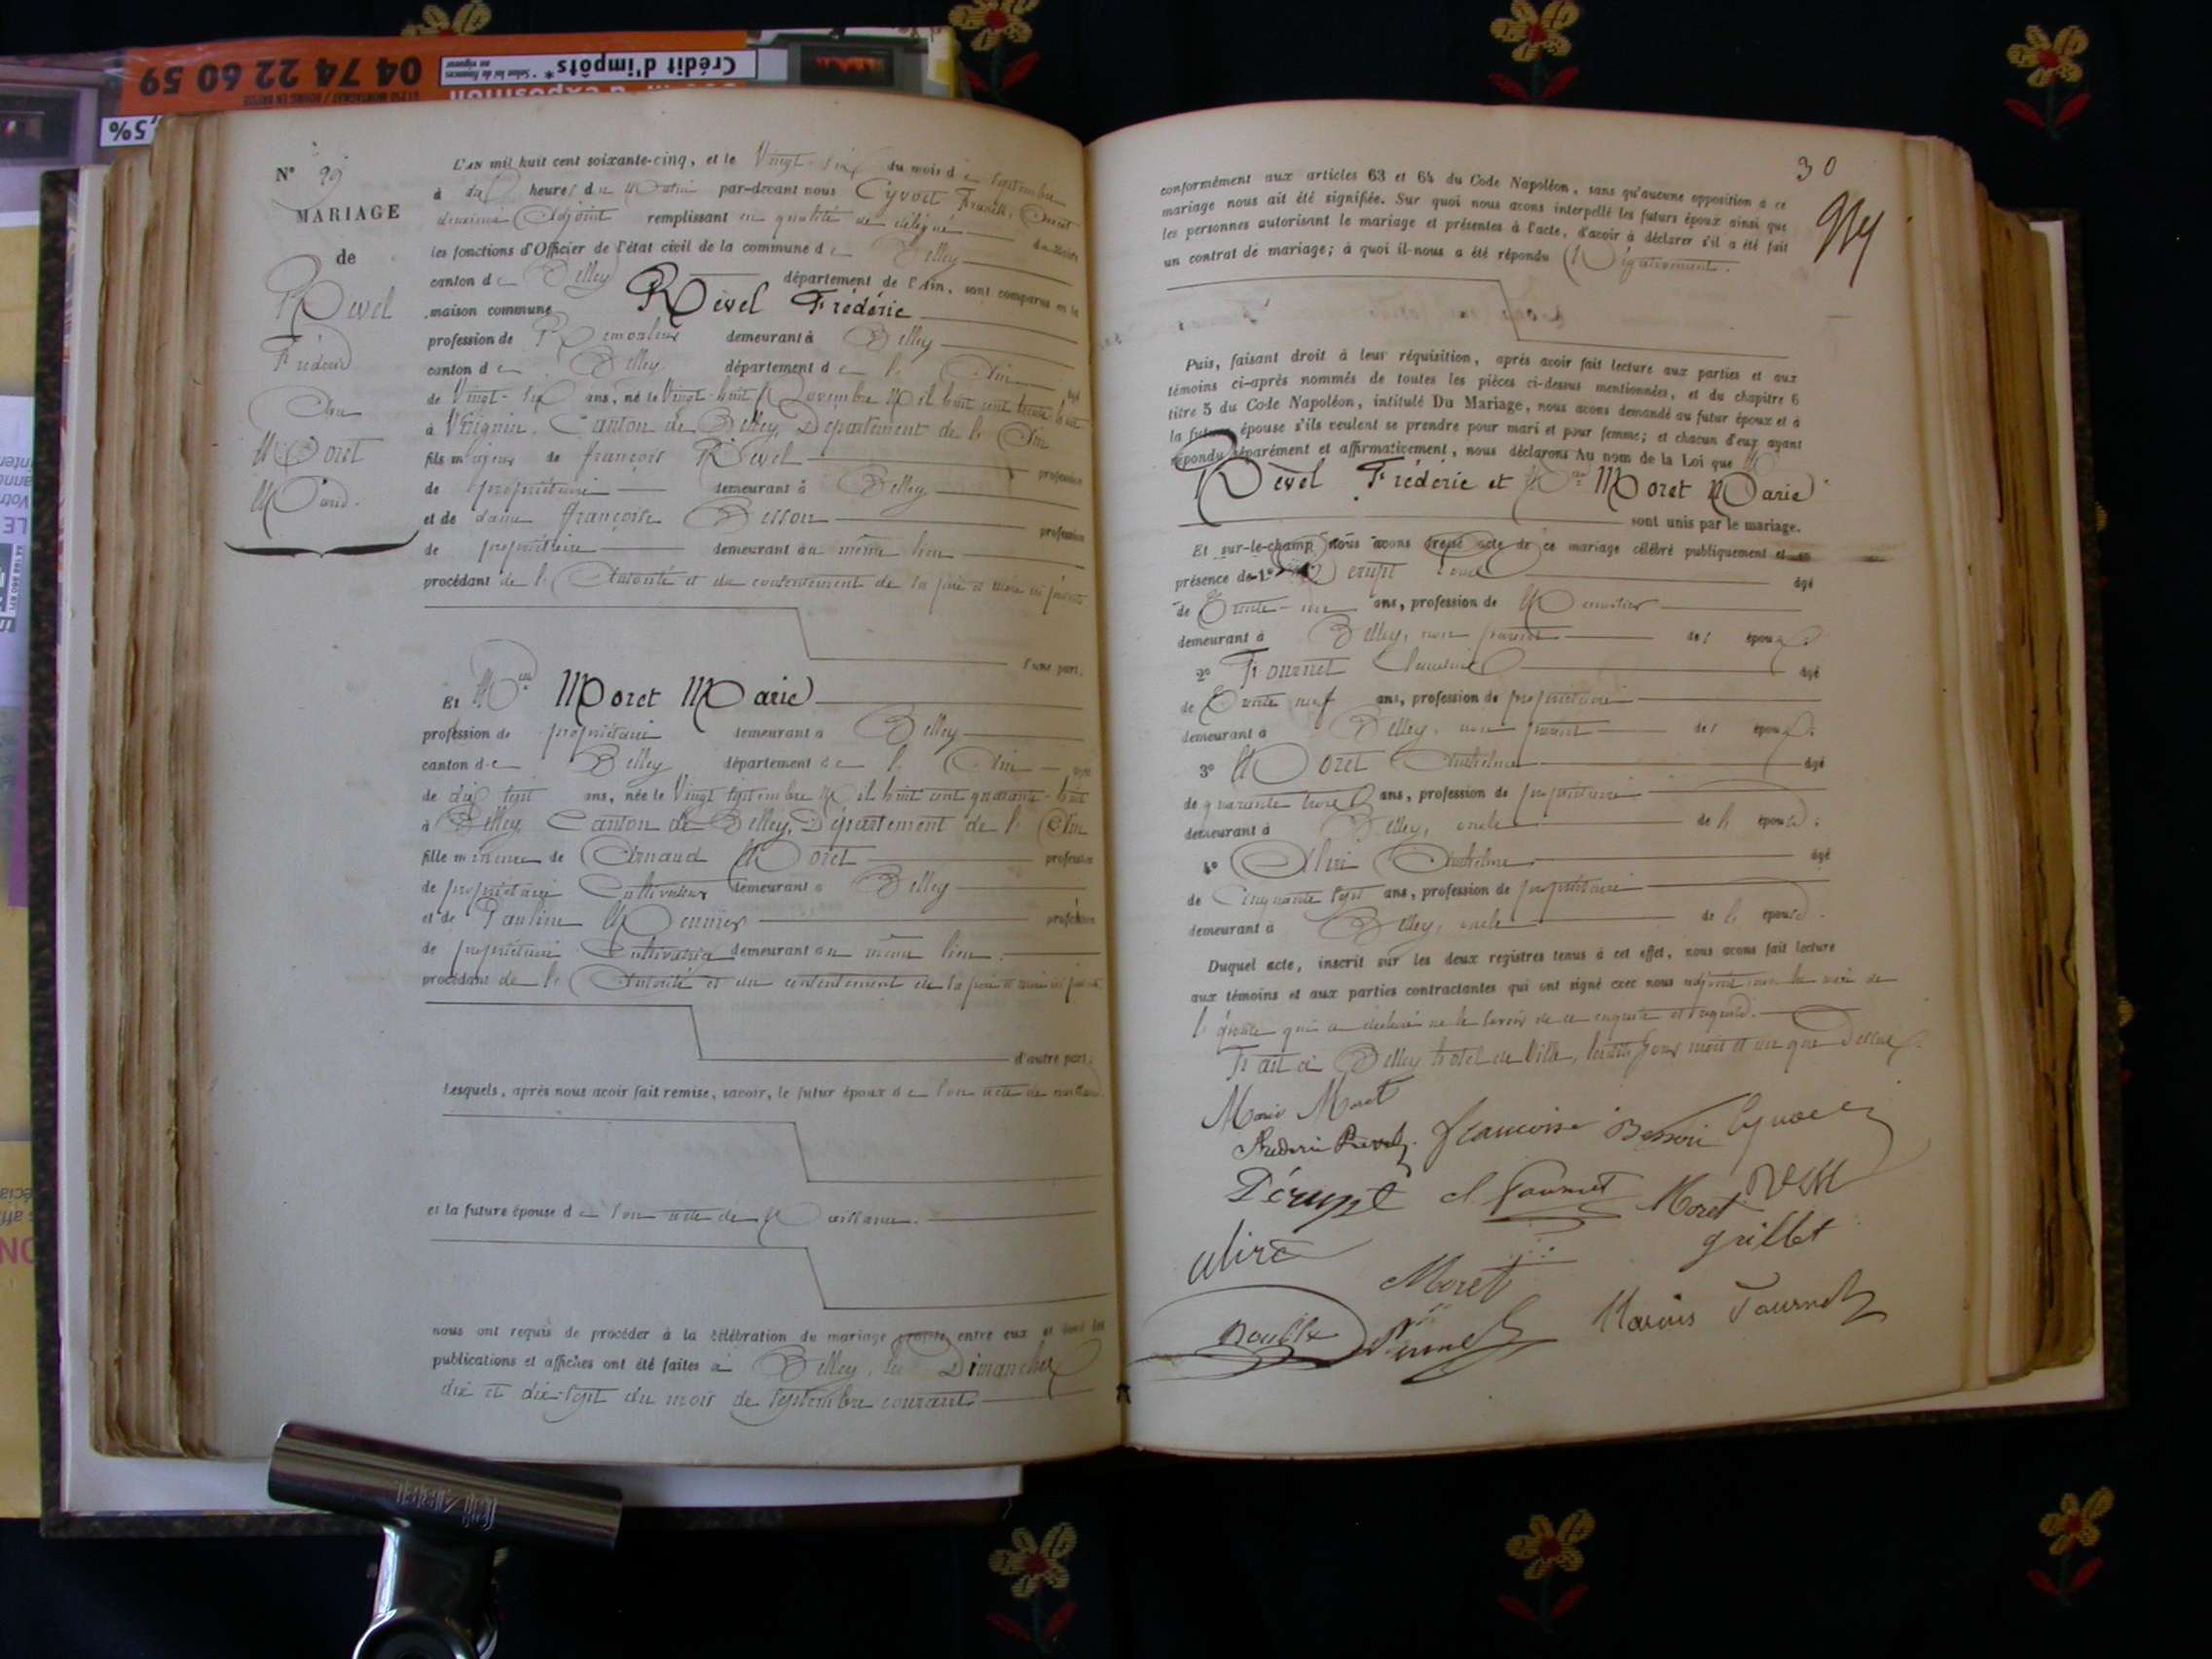 04 74 22 60 59
01250 MONTAGNAT / BOURG EN BRESSE
Crédit d'impôts*
* Selon loi de finances
en vigueur
d'exposition
,5%
N° 29
MARIAGE
de
Revel
Frédéric
Moret
Marie.
L'AN mil huit cent soixante-cinq, et le Vingt-six du mois de Septembre
à dix heures du Matin par-devant nous Cyvoct
deuxième Adjoint remplissant en qualité de délégué du Maire
les fonctions d'Officier de l'état civil de la commune de Belley
canton de Belley département de l'Ain, sont comparus en la
maison commune Revel Frédéric
profession de Remouleur demeurant à Belley
canton de Belley département de l'Ain âgé
de Vingt-six ans, né le Vingt-huit Novembre Mil huit cent trente-huit
à Virignin, Canton de Belley, Département de l'Ain
fils majeur de François Revel profession
de propriétaire demeurant à Belley
et de dame Françoise Besson profession
de propriétaire demeurant au même lieu
procédant de l'Autorité et du consentement de ses père et mère ici présents
d'une part;
Et Mlle Moret Marie
profession de propriétaire demeurant à Belley
canton de Belley département de l'Ain âgée
de dix sept ans, née le Vingt Septembre Mil huit cent quarante-huit
à Belley, Canton de Belley, Département de l'Ain
fille mineure de Arnaud Moret profession
de propriétaire Cultivateur demeurant à Belley
et de Pauline Monnier profession
de propriétaire Cultivatrice demeurant au même lieu.
procédant de l'Autorité et du consentement de ses père et mère ici présents
d'autre part;
Lesquels, après nous avoir fait remise, savoir, le futur époux de son acte de naissance.
et la future épouse de son acte de Naissance.
nous ont requis de procéder à la célébration du mariage projeté entre eux et dont les
publications et affiches ont été faites à Belley, les Dimanches
dix et dix-sept du mois de Septembre courant
30
conformément aux articles 63 et 64 du Code Napoléon, sans qu'aucune opposition à ce
mariage nous ait été signifiée. Sur quoi nous avons interpellé les futurs époux ainsi que
les personnes autorisant le mariage et présentes à l'acte, d'avoir à déclarer s'il a été fait
un contrat de mariage; à quoi il nous a été répondu Négativement.
Puis, faisant droit à leur réquisition, après avoir fait lecture aux parties et aux
témoins ci-après nommés de toutes les pièces ci-dessus mentionnées, et du chapitre 6
titre 5 du Code Napoléon, intitulé Du Mariage, nous avons demandé au futur époux et à
la future épouse s'ils veulent se prendre pour mari et pour femme; et chacun d'eux ayant
répondu séparément et affirmativement, nous déclarons Au nom de la Loi que M
Revel Frédéric et Mlle Moret Marie
sont unis par le mariage.
Et sur-le-champ nous avons dressé acte de ce mariage célébré publiquement et en
présence de 1° Perupt âgé
de Trente-un ans, profession de Menuisier
demeurant à Belley, non parent de l'époux;
2° Fournet âgé
de Trente neuf ans, profession de propriétaire
demeurant à Belley, non parent de l'époux;
3° Moret Anthelme âgé
de quarante trois ans, profession de propriétaire
demeurant à Belley, oncle de l'épouse;
4° Anthelme âgé
de Cinquante sept ans, profession de propriétaire
demeurant à Belley, oncle de l'épouse.
Duquel acte, inscrit sur les deux registres tenus à cet effet, nous avons fait lecture
aux témoins et aux parties contractantes qui ont signé avec nous adjoint non la mère de
l'épouse qui a déclaré ne le savoir de ce enquise et requise.
Fait à Belley hotel de Ville, lesdits jour mois et an que Dessus.
Marie Moret
Frederic Revel Francoise Besson Cyvoct
Pérupt Cl. Fournet Moret
grillet
Moret
Marius Fournet